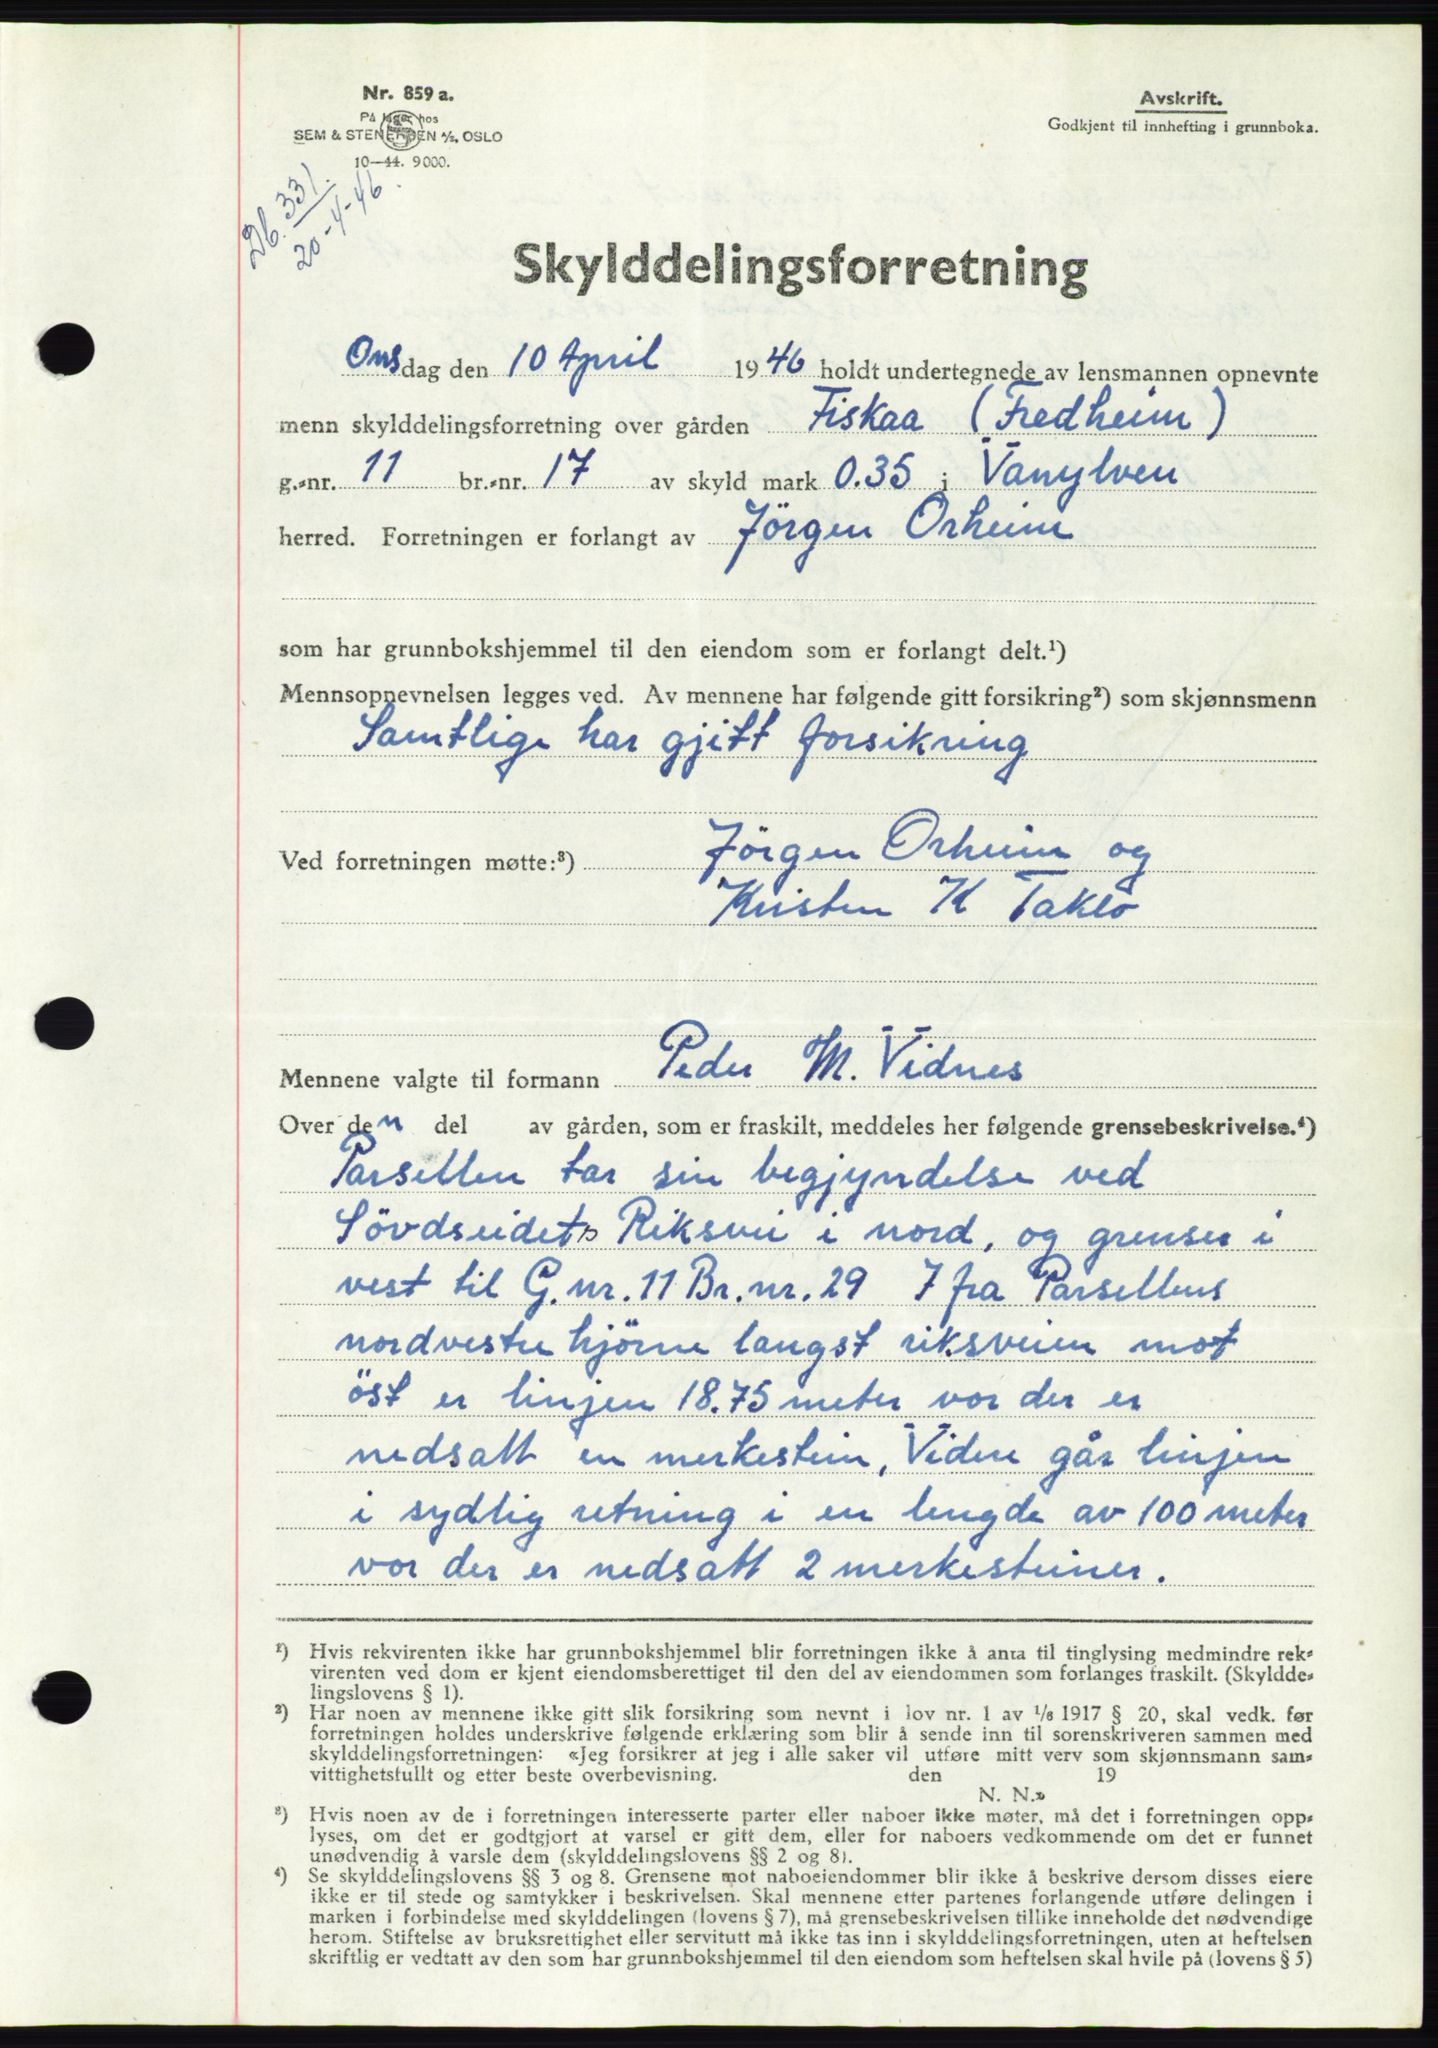 Nr. 859 a.
På lager hos
SEM & STENERSEN A/S, OSLO
10—44. 9000.
Avskrift.
Godkjent til innhefting i grunnboka.
Db. 331.
20-4-46.
Skylddelingsforretning
Onsdag den 10 April 1946 holdt undertegnede av lensmannen opnevnte
menn skylddelingsforretning over gården Fiskaa (Fredheim)
g.-nr. 11 br.-nr. 17 av skyld mark 0.35 i Vanylven
herred. Forretningen er forlangt av Jörgen Orheim
som har grunnbokshjemmel til den eiendom som er forlangt delt.¹)
Mennsopnevnelsen legges ved. Av mennene har følgende gitt forsikring²) som skjønnsmenn
Samtlige har gjitt forsikring
Ved forretningen møtte:³) Jörgen Orheim og
Kristen K Taklo
Mennene valgte til formann Peder M. Vidnes
Over den del av gården, som er fraskilt, meddeles her følgende grensebeskrivelse.⁴)
Parsellen tar sin begjyndelse ved
Sövdseidets Riksvei i nord, og grenser i
vest til G.nr. 11 Br.nr. 29 7 fra Parsellens
nordvestre hjörne langst riksveien mot
öst er linjen 18.75 meter vor der er
nedsatt en merkestein, Videre går linjen
i sydlig retning i en lengde av 100 meter
vor der er nedsatt 2 merkesteiner.
¹) Hvis rekvirenten ikke har grunnbokshjemmel blir forretningen ikke å anta til tinglysing medmindre rek-
virenten ved dom er kjent eiendomsberettiget til den del av eiendommen som forlanges fraskilt. (Skyldde-
lingslovens § 1).
²) Har noen av mennene ikke gitt slik forsikring som nevnt i lov nr. 1 av 1/6 1917 § 20, skal vedk. før
forretningen holdes underskrive følgende erklæring som blir å sende inn til sorenskriveren sammen med
skylddelingsforretningen: «Jeg forsikrer at jeg i alle saker vil utføre mitt verv som skjønnsmann sam-
vittighetsfullt og etter beste overbevisning. den 19
N. N.»
³) Hvis noen av de i forretningen interesserte parter eller naboer ikke møter, må det i forretningen opp-
lyses, om det er godtgjort at varsel er gitt dem, eller for naboers vedkommende om det er funnet
unødvendig å varsle dem (skylddelingslovens §§ 2 og 8).
⁴) Se skylddelingslovens §§ 3 og 8. Grensene mot naboeiendommer blir ikke å beskrive dersom disses eiere
ikke er til stede og samtykker i beskrivelsen. Skal mennene etter partenes forlangende utføre delingen i
marken i forbindelse med skylddelingen (lovens § 7), må grensebeskrivelsen tillike inneholde det nødvendige
herom. Stiftelse av bruksrettighet eller servitutt må ikke tas inn i skylddelingsforretningen, uten at heftelsen
skriftlig er vedtatt av den som har grunnbokshjemmel til den eiendom som heftelsen skal hvile på (lovens § 5)